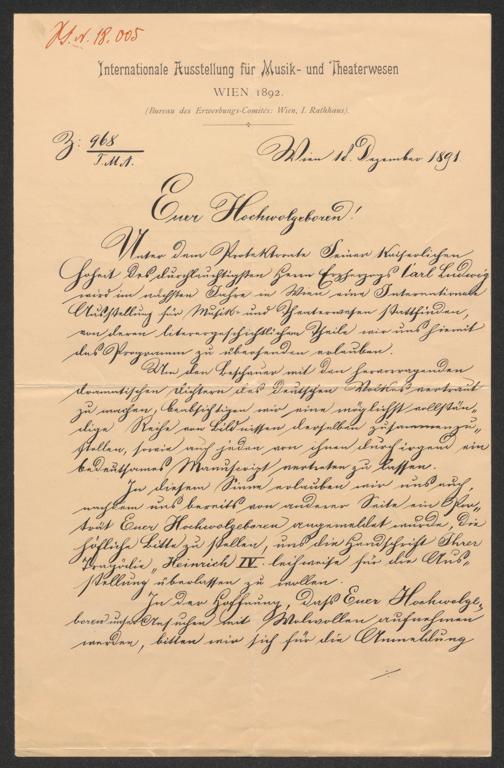 J. N. 18.005
Internationale Ausstellung für Musik- und Theaterwesen
WIEN 1892.
(Bureau des Erwerbungs-Comités: Wien, I. Rathhaus).
Z: 968
T.M.A.
Wien 18. Dezember 1891
Euer Hochwolgeboren!
Unter dem Protektorate Seiner kaiserlichen
Hoheit des durchlauchtigsten Herrn Erzherzogs Carl Ludwig
wird im nächsten Jahre in Wien eine Internationale
Ausstellung für Musik- und Theaterwesen stattfinden,
von deren literargeschichtlichen Theile wir uns hiemit
das Programm zu übersenden erlauben.
Um den Beschauer mit den hervorragenden
dramatischen Dichtern des Deutschen Volkes vertraut
zu machen, beabsichtigen wir eine möglichst vollstän„
dige Reihe von Bildnissen derselben zusammenzu„
stellen, sowie auch jeden von ihnen durch irgend ein
bedeutsames Manuscript vertreten zu lassen.
In diesem Sinne erlauben wir uns auch,
nachdem uns bereits von anderer Seite ein Por„
trait Euer Hochwolgeboren angemeldet wurde, die
höfliche Bitte zu stellen, uns die Handschrift Ihrer
Tragödie, Heinrich IV. leihweise für die Aus„
stellung überlassen zu wollen.
In der Hoffnung, dass Euer Hochwolge„
boren unser Ansuchen mit Wolwollen aufnehmen
werden, bitten wir sich für die Anmeldung